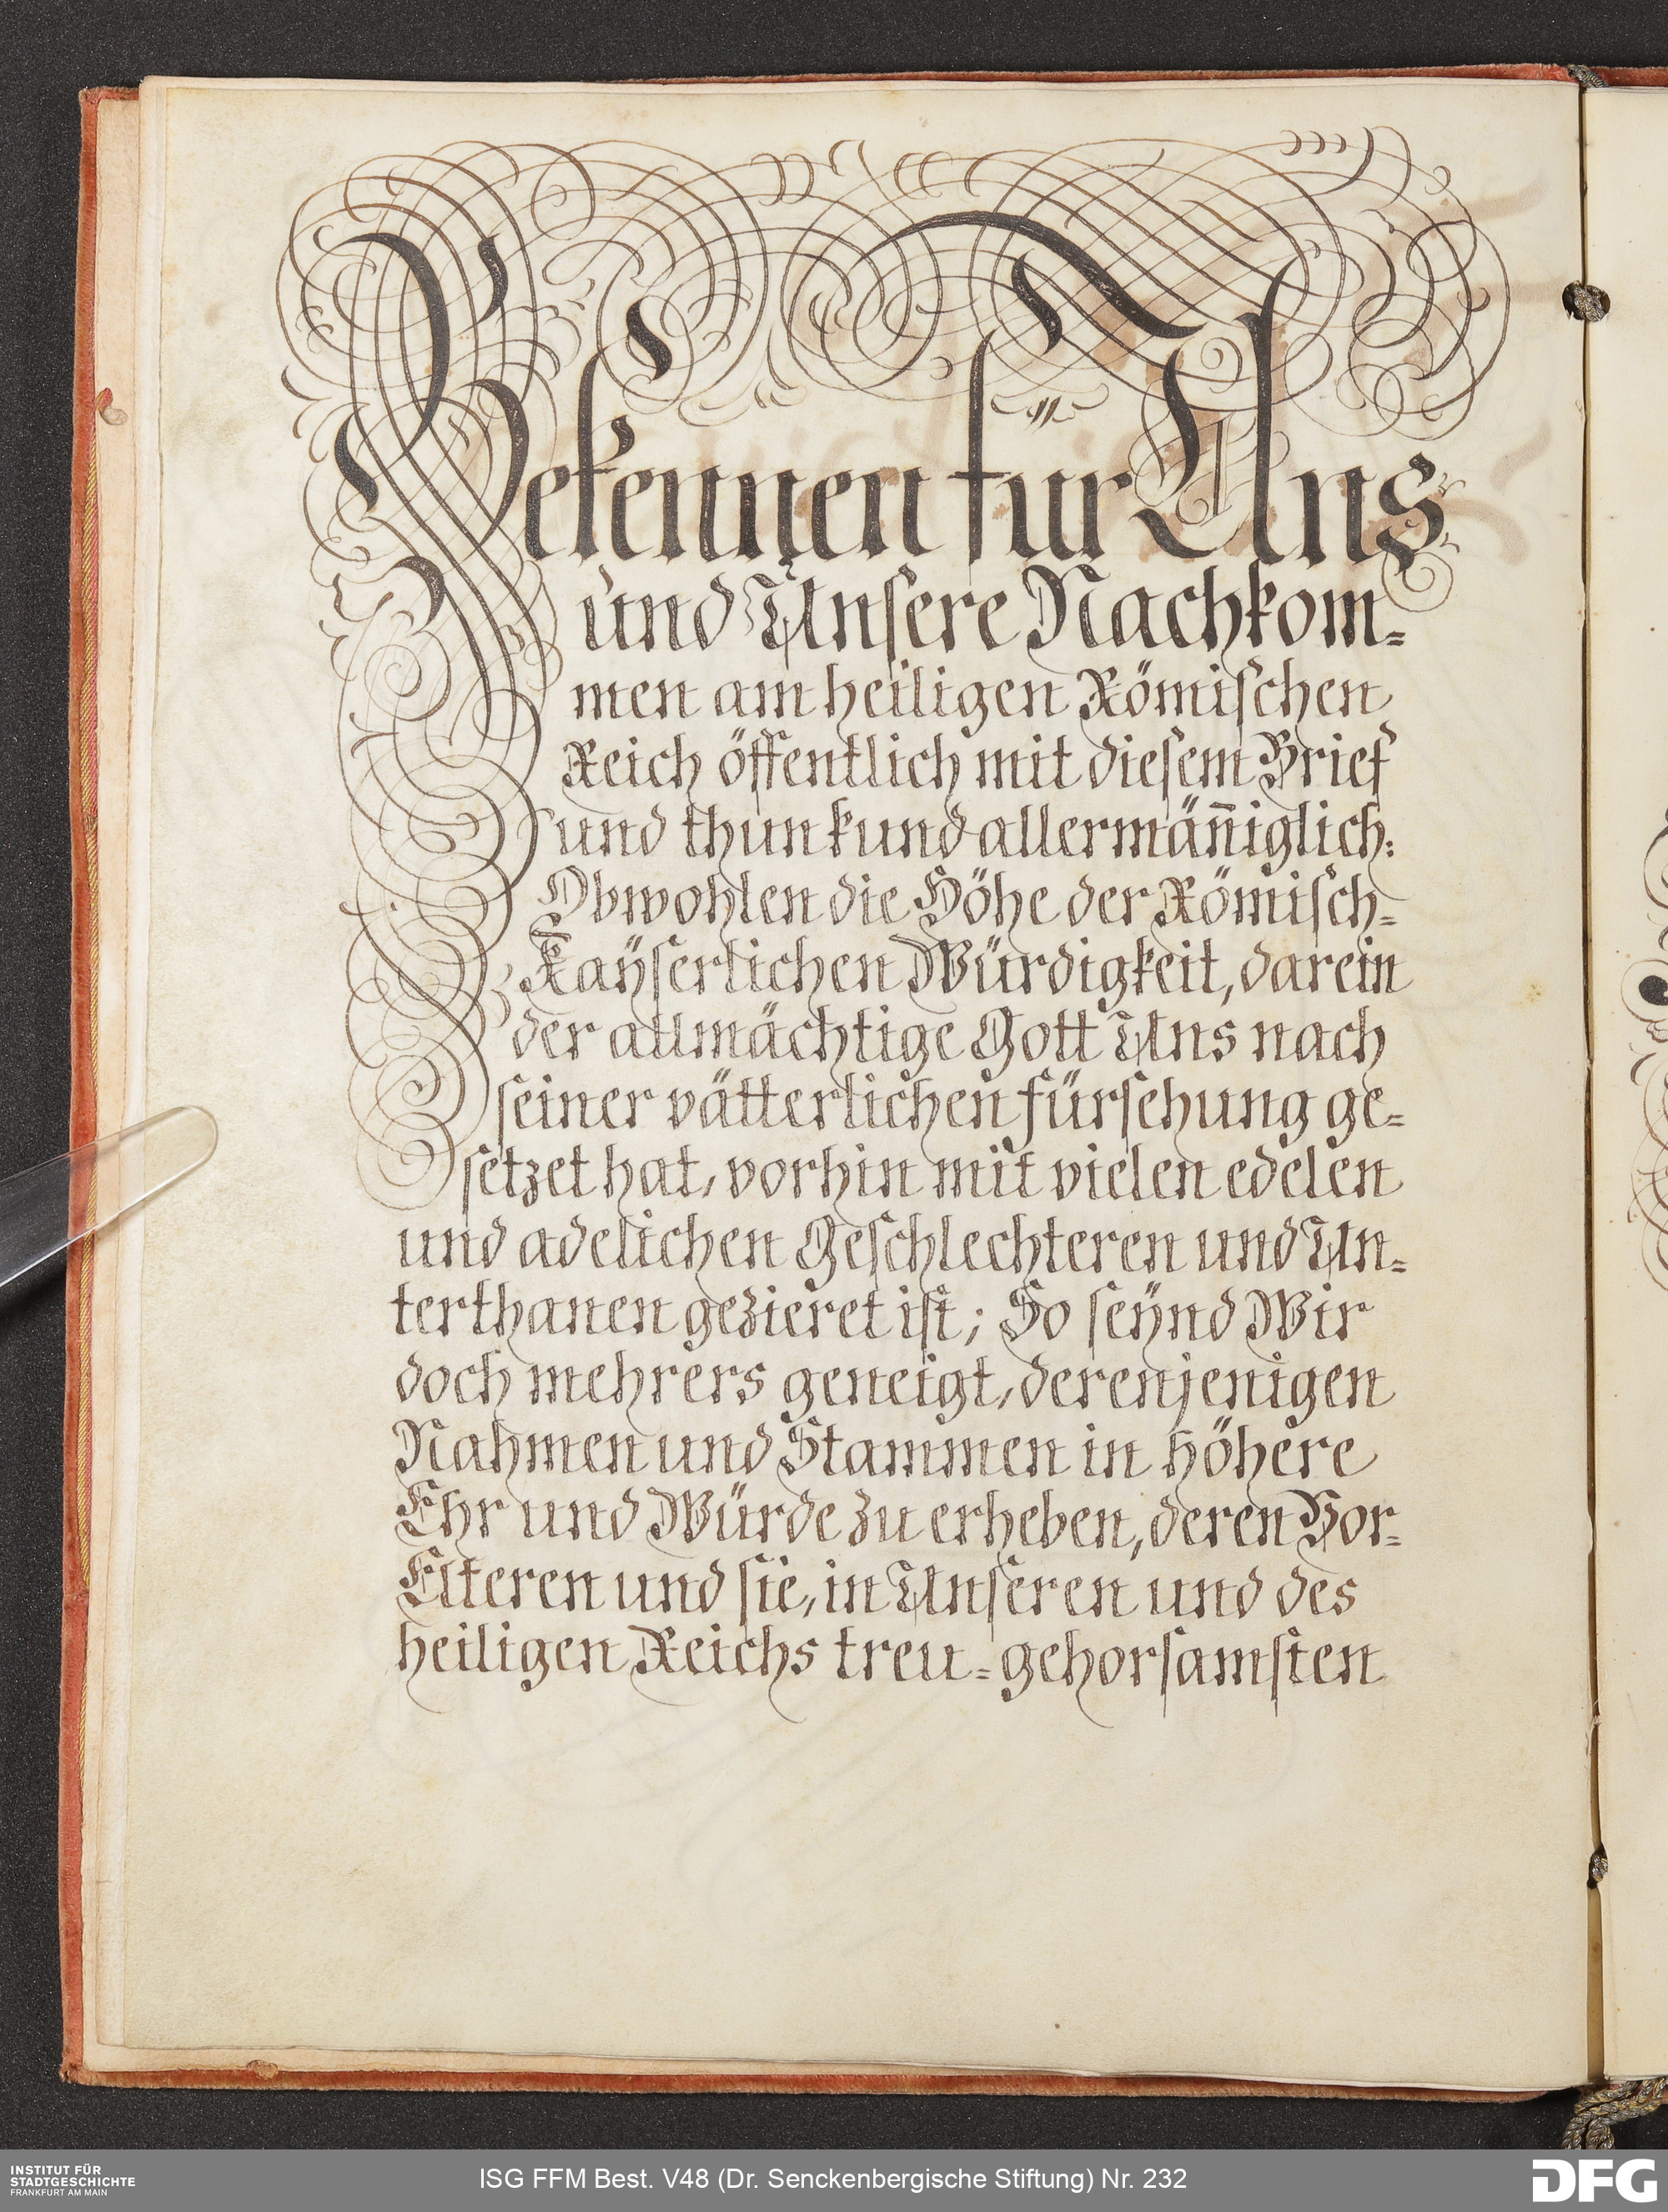 Bekennen für Uns
und Unsere Nachkom=
men am heiligen Römischen
Reich öffentlich mit diesem Brief
und thun kund allermän̄iglich:
Obwohlen die Höhe der Römisch=
Kaÿserlichen Würdigkeit, darein
der allmächtige Gott Uns nach
seiner vätterlichen fürsehung ge=
setzet hat, vorhin mit vielen edelen
und adelichen Geschlechteren und Un=
terthanen gezieret ist; So seÿnd Wir
doch mehrers geneigt, derenjenigen
Nahmen und Stammen in höhere
Ehr und Würde zu erheben, deren Vor=
Elteren und sie, in Unseren und des
heiligen Reichs treu=gehorsamsten
INSTITUT FÜR
STADTGESCHICHTE
FRANKFURT AM MAIN
ISG FFM Best. V48 (Dr. Senckenbergische Stiftung) Nr. 232
DFG